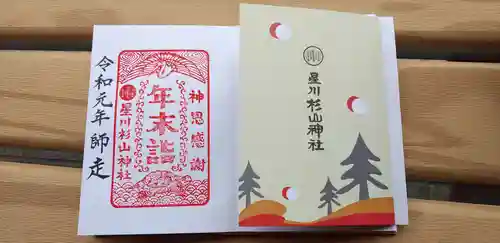 神恩感謝
年末詣
星川杉山神社
令和元年師走
星川杉山神社